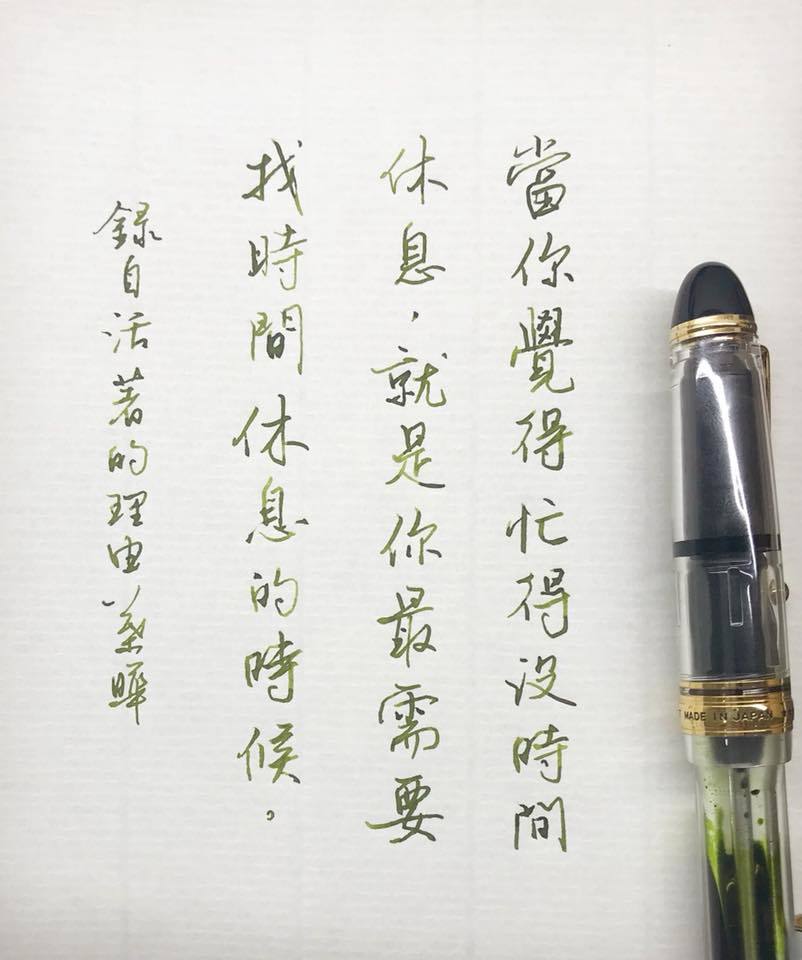 當你覺得忙得沒時間
休息，就是你最需要
找時間休息的時候。
錄自活著的理由 葉曄
MADE IN JAPAN